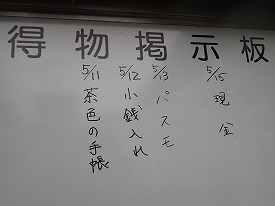 得物掲示板
5/11 茶色の手帳
5/12 小銭入れ
5/13 パスモ
5/15 現金